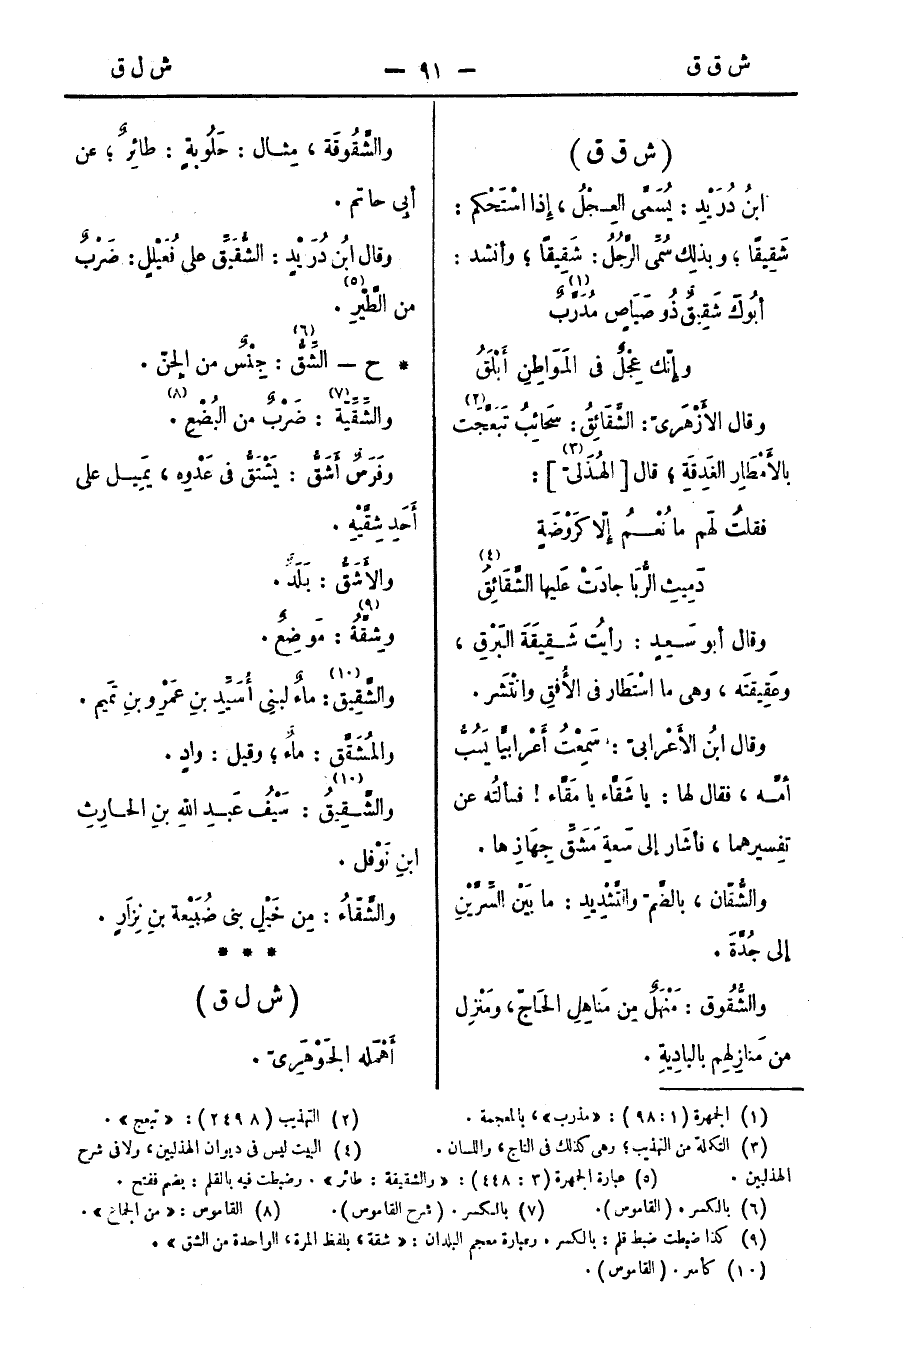 ش ق ق — ٩١ — ش ل ق
(ش ق ق)
ابنُ دُرَيْدٍ : يُسَمَّى العِـجْلُ ، إذا اسْتَحْكَم :
شَقِيقًا ؛ وبذلك سُمِّى الرَّجُلُ : شَقِيقًا ؛ وأنشد :
أَبُوكَ شَقِيقٌ ذُو صَيَاصٍ مُدَرَّبٌ (١)
وإنّك عِجْلٌ فى المَوَاطِنِ أَبْلَقُ
وقال الأَزْهَرىّ : الشَّقَائِقُ : سَحَائِبُ تَبَعَّجَت (٢)
بالأَمْطارِ الغَدِقَةِ ؛ قال [ الهُذَلىّ (٣) ] :
فقلتُ لهَم ما نُعْـــمُ إلّا كَرَوْضَةٍ
دَمِيثِ الرُّبَا جادَتْ عَلَيها الشَّقَائِقُ (٤)
وقال أبو سَـعِيدٍ : رأيتُ شَـقِيقَةَ البَرْقِ ،
وعَقِيقَتَه ، وهى ما اسْتَطار فى الأُفُقِ وانْتَشَر .
وقال ابنُ الأعْرابىّ : سَمِعْتُ أَعْرابيًّا يَسُبُّ
أمَّـه ، فقال لها : يا شَقَّاء يا مَقَّاء ! فسألتُه عن
تفسيرهما ، فأشار إلى سَعةِ مَشَقّ جِهَازِها .
والشُّقّان ، بالضّمّ والتَّشْدِيدِ : ما بَيْن السِّرَّيْنِ
إلى جُدَّةَ .
والشُّقُوق : مَنْهَلٌ مِن مَناهِلِ الحَاجّ ، ومَنْزِل
من مَنازِلِهم بالبادِيةِ .
والشَّقُوقَة ، مِثــال : حَلُوبةٍ : طائِرٌ ؛ عن
أبِى حاتم .
وقال ابنُ دُرَيْدٍ : الشُّقَيِّق على فُعَيْلِلٍ : ضَرْبٌ
من الطَّيْرِ (٥) .
* ح — الشِّقُّ (٦) : جِنْسٌ من الجِنّ .
والشِّقِّيّة (٧) : ضَرْبٌ من البُضْعِ (٨) .
وفَرَسٌ أَشَقُّ : يَشْتَقُّ فى عَدْوِه ، يَمِيــل على
أَحَدِ شِقَّيْهِ .
والأَشَقُّ : بَلَدٌ .
وشِقَّةُ (٩) : مَوضِعٌ .
والشَّقِيق (١٠) : ماءٌ لبنِى أُسَيِّدِ بنِ عَمْرِو بنِ تَميم .
والمُشَقَّق : ماءٌ ؛ وقيل : وادٍ .
والشَّـقِيقُ (١٠) : سَيْفُ عَبـدِ اللهِ بنِ الحـارِثِ
ابنِ نَوْفل .
والشَّقّاءُ : مِن خَيْلِ بنى ضُبَيْعةَ بنِ نِزَارٍ .
* * *
(ش ل ق)
أَهْمَله الجَوْهَرىّ .
(١) الجمهرة (١ : ٩٨) : « مذرب » ، بالمعجمة . (٢) التهذيب (٨ ٢٤٩) : « تبعج » .
(٣) التكملة من التهذيب ؛ وهى كذلك فى التاج ، واللسان . (٤) البيت ليس فى ديوان الهذليين ، ولا فى شرح
الهذليين . (٥) عبارة الجمهرة (٣ : ٤٤٨) : « والشقيقة : طائر » . وضبطت فيه بالقلم : بضم ففتح .
(٦) بالكسر . (القاموس) . (٧) بالكسر . (شرح القاموس) . (٨) القاموس : « من الجماع » .
(٩) كذا ضبطت ضبط قلم : بالكسر . وعبارة معجم البلدان : « شقة ، بلفظ المرة ، الواحدة من الشق » .
(١٠) كأمير . (القاموس) .